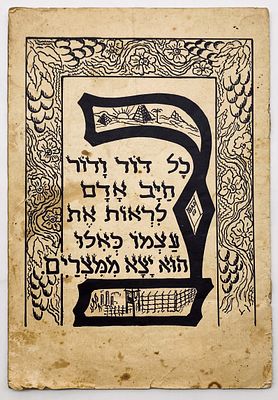 בכָל דוֹר וָדוֹר
חַיָב אָדָם
לִרְאוֹת אֶת
עַצְמוֹ כְּאִלוּ
הוּא יָצָא מִמִצְרַיִם.